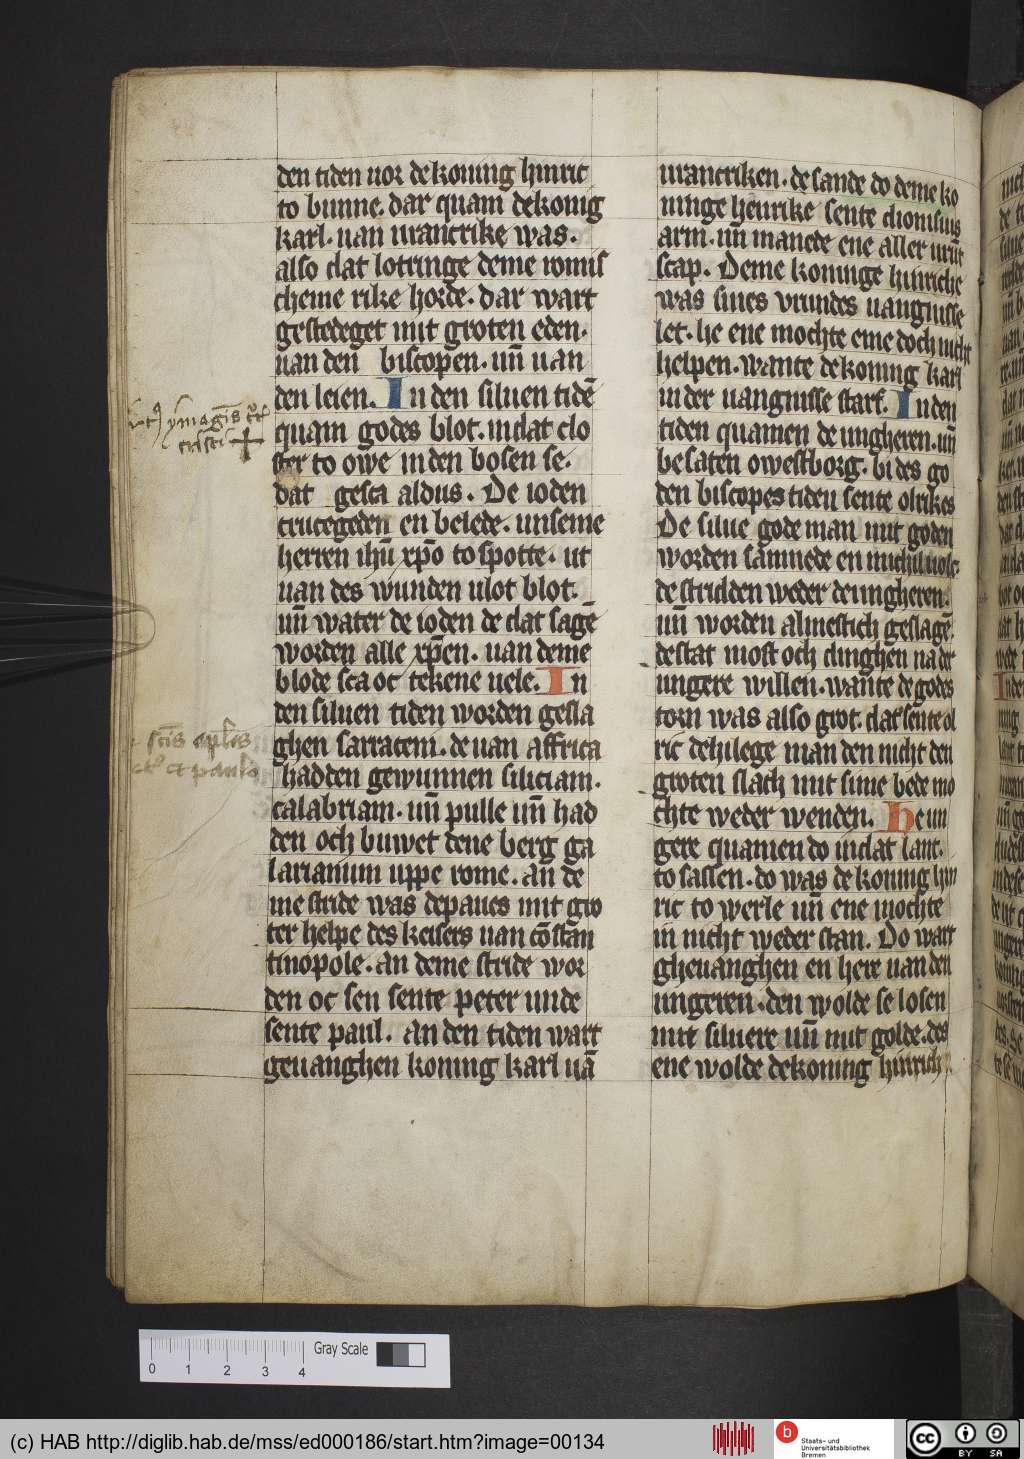 den tiden uor de koning hinric
to bunne. dar quam de konig
karl. uan urancrike was.
also dat lotringe deme romis
cheme rike horde. dar wart
gestedeget mit groten eden.
uan den biscopen. un̄ uan
den leien. In den siluen tidē
quam godes blot. in dat clo
ster to owe in den bosen se.
dat gesca aldus. De ioden
crucegeden en belede. unseme
herren ihū xp̄o to spotte. ut
uan des wunden ulot blot.
un̄ water de ioden de dat sagē
worden alle xp̄en. uan deme
blode sca oc tekene uele. In
den siluen tiden worden gesla
ghen sarraceni. de uan affrica
hadden gewunnen siliciam.
calabriam. un̄ pulle un̄ had
den och buwet dene berg ga
larianum uppe rome. an de
me stride was de paues mit gro
ter helpe des keisers uan cōstan
tinopole. an deme stride wor
den oc sen sente peter unde
sente paul. an den tiden wart
geuanghen koning karl uā
urancriken. de sande do deme ko
ninge henrike sente dionisius
arm. un̄ manede ene aller urūt
scap. Deme koninge hinriche
was sines vrundes uangnisse
let. he ene mochte eme doch nicht
helpen. wante de koning karl
in der uangnisse starf. In den
tiden quamen de ungheren. un̄
besaten owestborg. bi des go
den biscopes tiden sente olrikes
De silue gode man mit goden
worden samnede en michil uolc.
de stridden weder de ungheren.
un̄ worden almestich geslagē.
de stat most och dinghen na der
ungere willen. wante de godes
torn was also grot. dat sente ol
ric de hilege man den nicht den
groten slach mit sime bede mo
chte weder wenden. De un
gere quamen do in dat lant.
to sassen. do was de koning hin
ric to werle un̄ ene mochte
in nicht weder stan. Do wart
gheuanghen en here uan den
ungeren. den wolde se losen
mit siluere un̄ mit golde. des
ene wolde de koning hinrich
ymaginis
cristi
et paulo
Gray Scale
0 1 2 3 4
(c) HAB http://diglib.hab.de/mss/ed000186/start.htm?image=00134
b
Staats- und
Universitätsbibliothek
Bremen
cc
BY SA